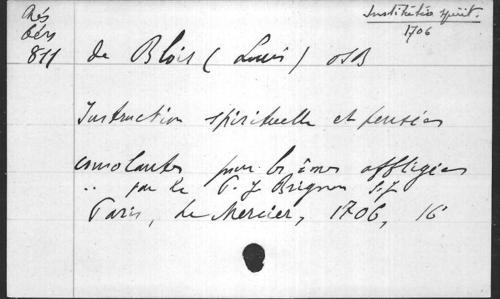 Rés
811
Institutio spirit.
1706
de Blois (Louis) OSB
Instruction spirituelle et pensées
consolantes pour les âmes affligées
.. par le P. J. Brignon S.J.
Paris, Le Mercier, 1706, 16°